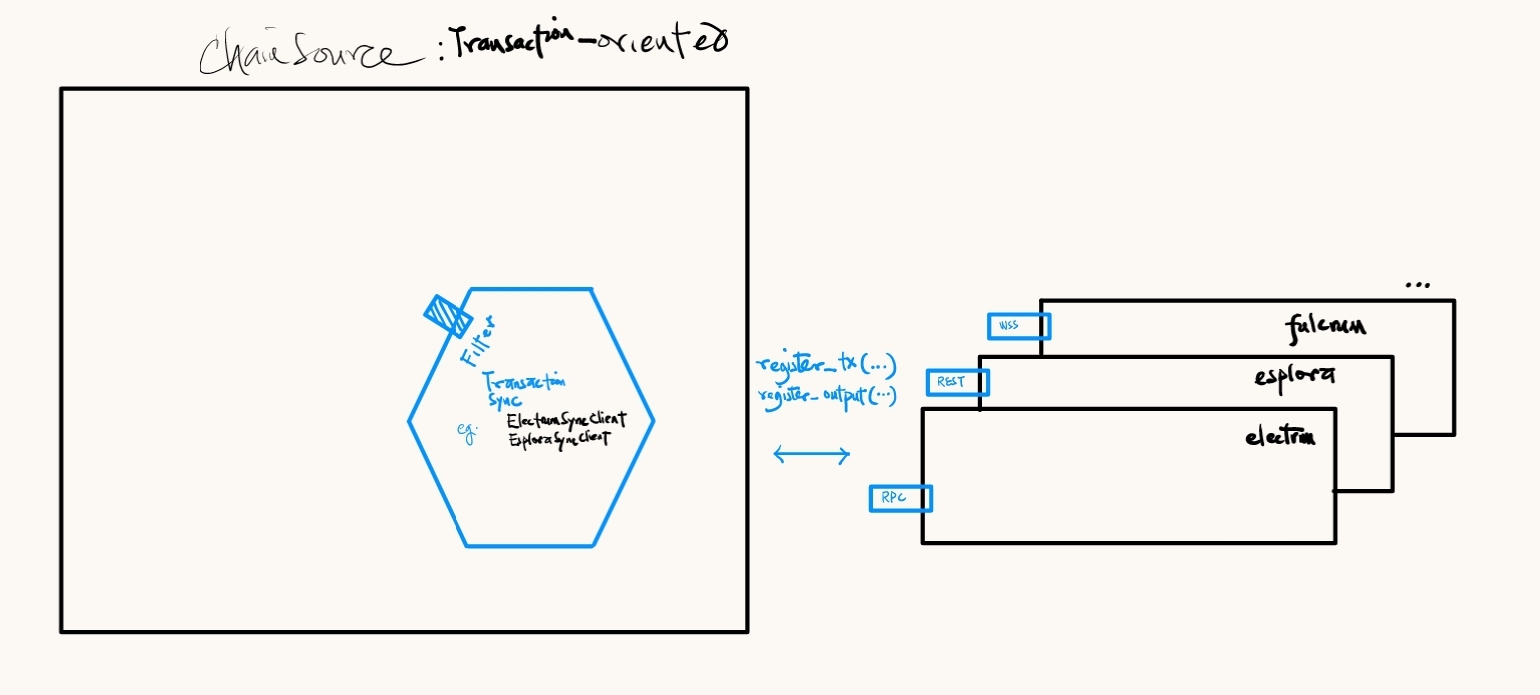 ChainSource : Transaction-oriented
Filter
Transaction
Sync
eg.
ElectrumSyncClient
EsploraSyncClient
register_tx(...)
register_output(...)
...
WSS
fulcrum
REST
esplora
electrum
RPC